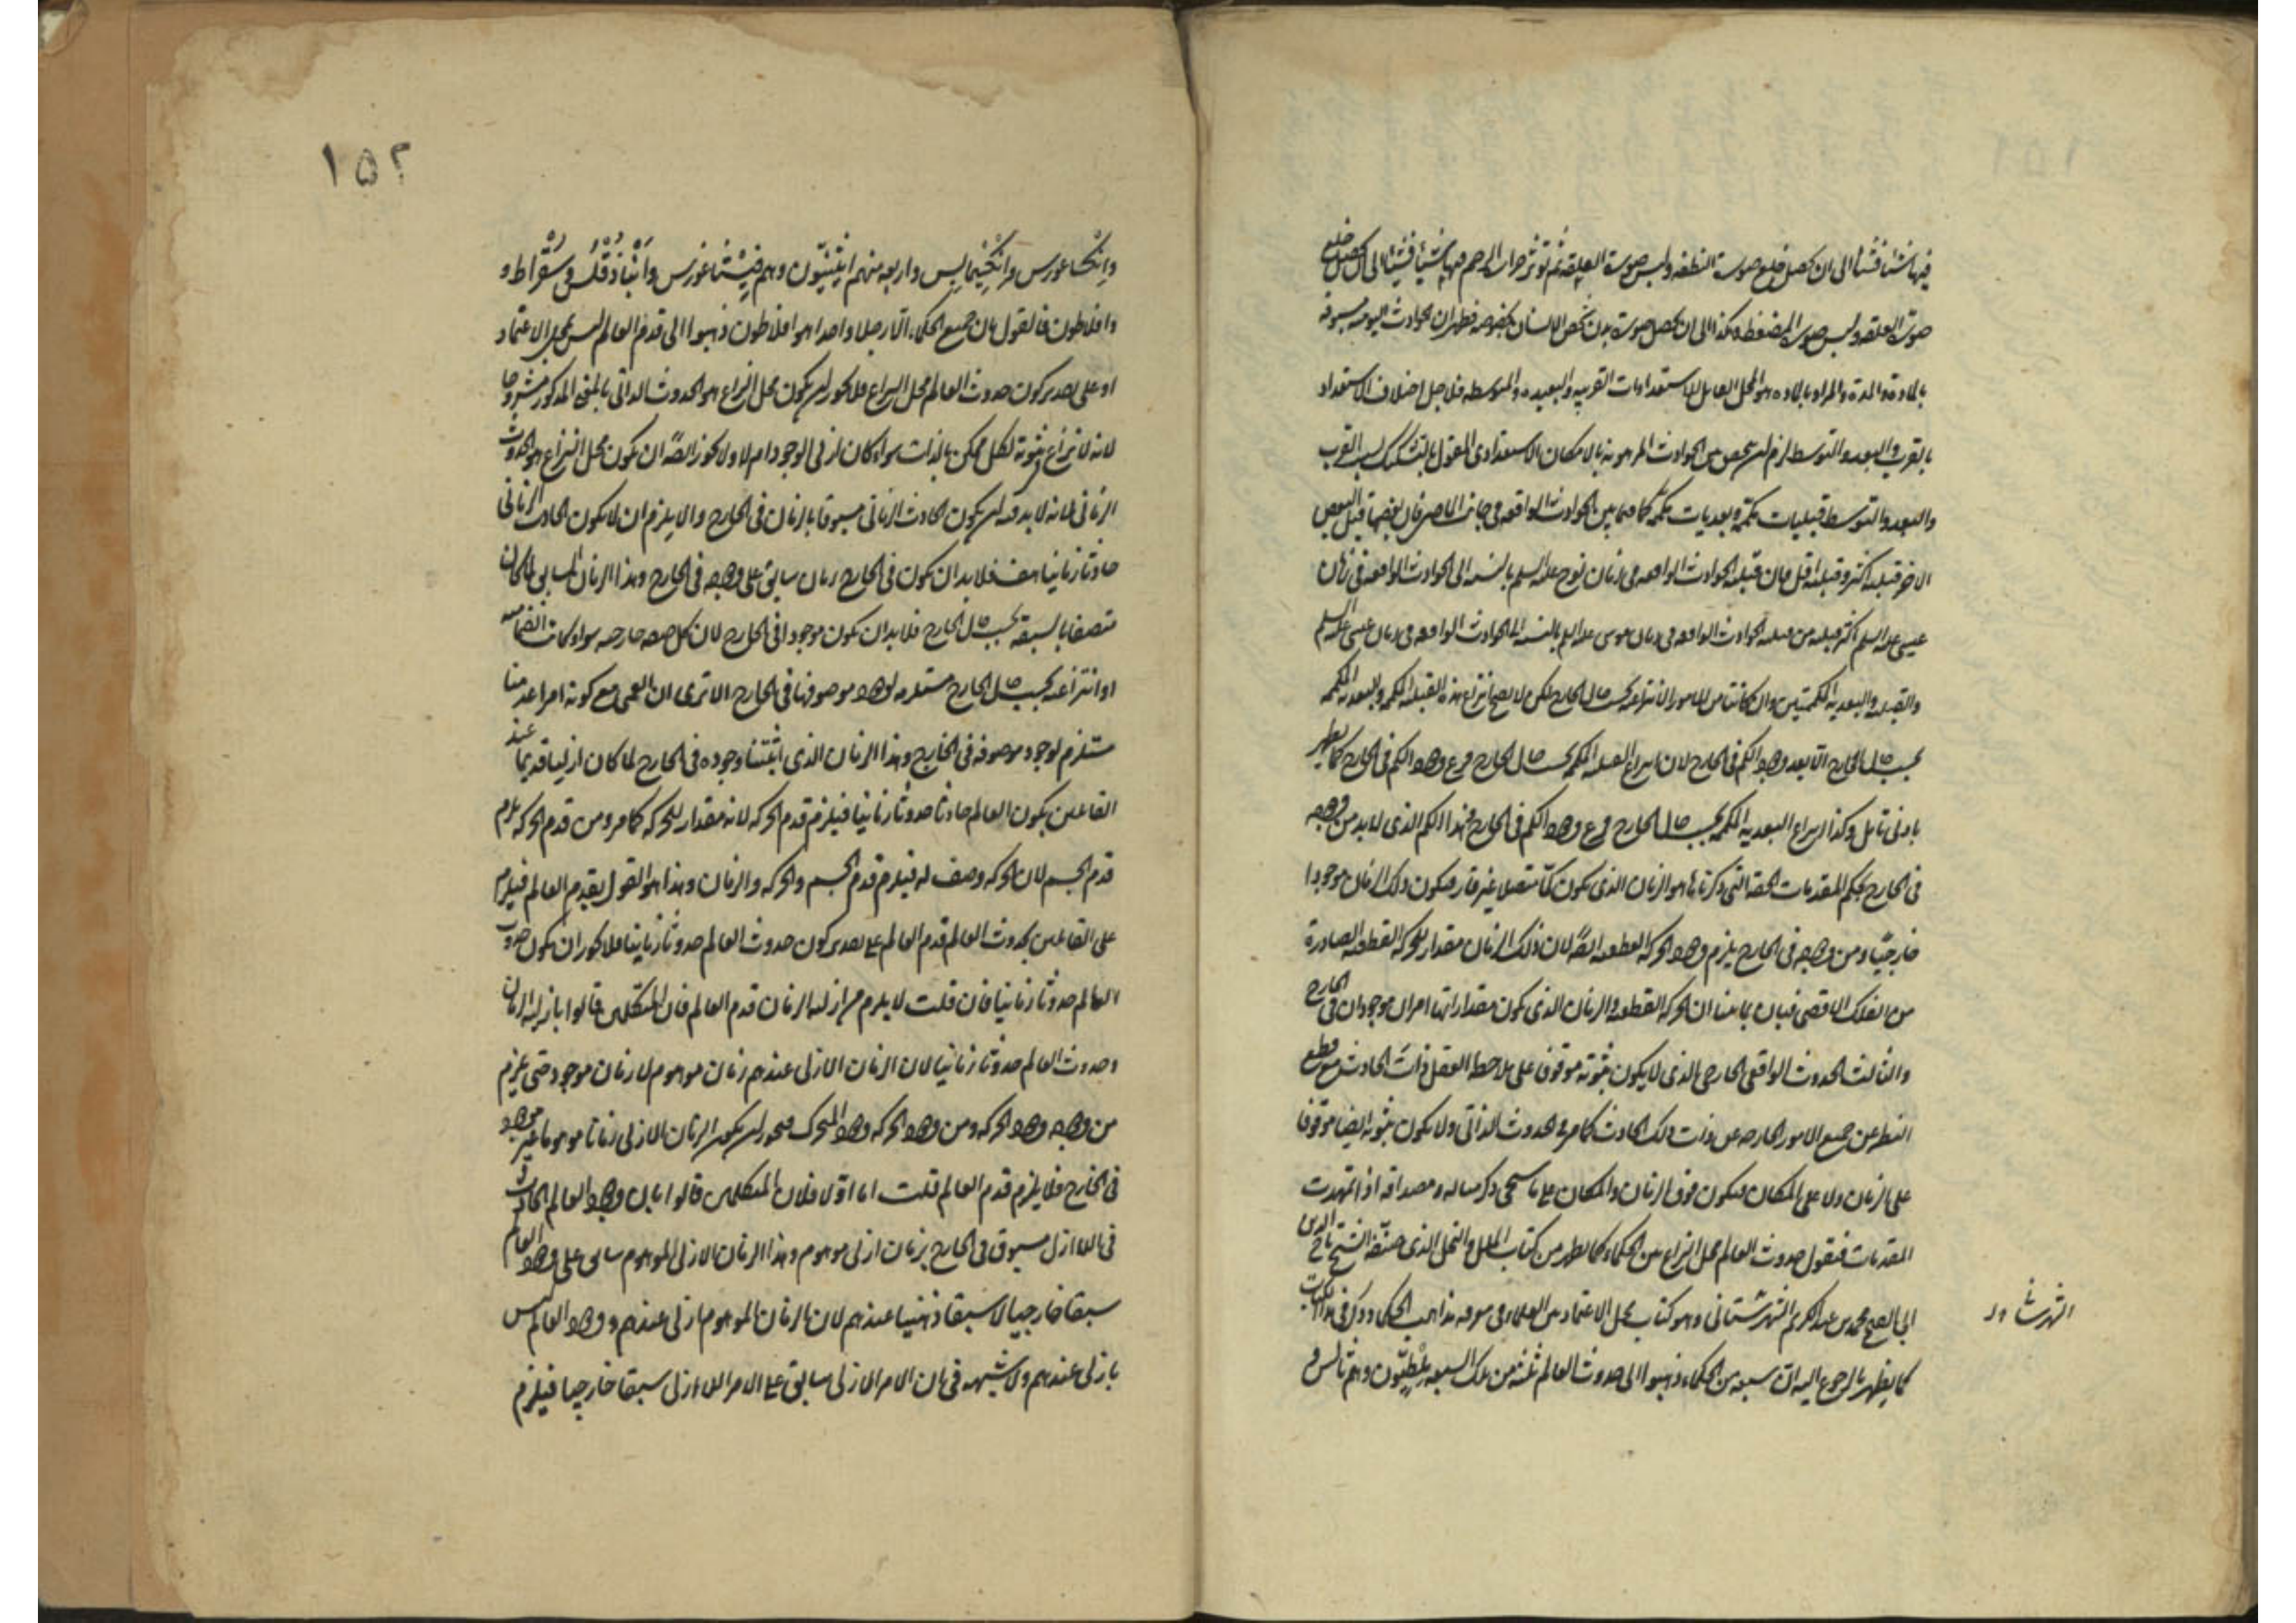 فيها شيئا فشيئا الى ان يحصل خلع صورت النطفه ولبس صورت العلقه ثم توثر حرارت الرحم فيها شيئا فشيئا الى ان يحصل خلع
صورت العلقه ولبس صورت المضغه وهكذا الى ان يحصل صورت بدن شخص الانسان بخصوصه فظهر ان الحوادث اليوميه مسبوقه
بالمادة والمدة والمراد بالماده هو المحل القابل للاستعدادات القريبه والبعيده والمتوسطه فلاجل اختلاف الاستعداد
بالقرب والبعد والتوسط لزم ان يحصل بين الحوادث المرهونه بالامكان الاستعدادى المقول بالتشكيك بسبب القرب
والبعد والتوسط قبليات متكممه وبعديات متكممه كما فيما بين الحوادث الواقعه فى جانب الماضى فان بعضها قبل البعض
الاخر قبليه اكثر وقبليه اقل فان قبليه الحوادث الواقعه فى زمان نوح عليه السلم بالنسبه الى الحوادث الواقعه فى زمان
عيسى عليه السلم اكثر قبليه من قبليه الحوادث الواقعه فى زمان موسى عليه السلم بالنسبه الى الحوادث الواقعه فى زمان عيسى عليه السلم
والقبليه والبعديه المتكممتين وان كانتا من الامور الانتزاعيه بحسب حال الخارج لكن لا يصح انتزاع هذه القبليه المتكممه والبعديه المتكممه
بحسب حال الخارج الا بعد وجود الكم فى الخارج لان انتزاع القبليه المتكممه بحسب حال الخارج فرع وجود الكم فى الخارج كما يظهر
بادنى تامل وكذا انتزاع البعديه المتكممه بحسب حال الخارج فرع وجود الكم فى الخارج فهذا الكم الذى لابد من وجوده
فى الخارج بحكم المقدمات الحقه التى ذكرناها هو الزمان الذى يكون كمّا متصلا غير قار فيكون ذلك الزمان موجودا
خارجيّا ومن وجوده فى الخارج يلزم وجود الحركه القطعيه ايضًا لان ذلك الزمان مقدار للحركه القطعيه الصادرة
من الفلك الاقصى فبان بما بينا ان الحركه القطعيه والزمان الذى يكون مقدارا لها امران موجودان فى الخارج
والثالث الحدوث الواقعى الخارجى الذى لا يكون ثبوته موقوفا على ملاحظه العقل ذات الحادث مع قطع
النظر عن جميع الامور الخارجه عن ذات ذلك الحادث كما مر فى الحدوث الذاتى ولا يكون ثبوته ايضا موقوفا
على الزمان ولا على المكان فيكون فوق الزمان والمكان على ما سيجى ذكر مثاله ومصداقه اذا تمهدت
المقدمات فنقول حدوث العالم محل النزاع بين الحكماء كما يظهر من كتاب الملل والنحل الذى صنّفه الشيخ تاج الدين
ابى الفتح محمد بن عبد الكريم الشهرستانى وهو كتاب محل الاعتماد بين العلماء فى معرفه مذاهب الحكماء وذكر فى هذا الكتاب
الشهرستانى
كما يظهر بالرجوع اليه ان سبعه من الحكماء ذهبوا الى حدوث العالم ثلثه من تلك السبعه ملطيّون وهم ثاليس
١٥٢
وانكساغورس وانكسيمايس واربعه منهم اينيّون وهم فيثاغورس وانباذقلس وسقراط و
وافلاطون فالقول بان جميع الحكماء الا رجلا واحدا هو افلاطون ذهبوا الى قدم العالم ليس محل الاعتماد
او على تقدير كون حدوث العالم محل النزاع فلا يجوز ان يكون محل النزاع هو الحدوث الذاتى بالمعنى المذكور مشروحا
لانه لا نزاع فى ثبوته لكل ممكن بالذات سواء كان ازلى الوجود ام لا ولا يجوز ايضًا ان يكون محل النزاع هو الحدوث
الزمانى فانه لابد فيه ان يكون الحادث الزمانى مسبوقا بالزمان فى الخارج والا يلزم ان لا يكون الحادث الزمانى
حادثا زمانيا هف فلابد ان يكون فى الخارج زمان سابق على وجوده فى الخارج وهذا الزمان السابق لما كان
متصفا بالسبق بحسب حال الخارج فلابد ان يكون موجودا فى الخارج لان كل صفه خارجيه سواء كانت انضماميه
او انتزاعيه بحسب حال الخارج مستلزمه لوجود موصوفها فى الخارج الا ترى ان العمى مع كونه امرا عدميا
مستلزم لوجود موصوفه فى الخارج وهذا الزمان الذى اثبتنا وجوده فى الخارج لما كان ازليا قديما عند
القائلين بكون العالم حادثا حدوثا زمانيا فيلزم قدم الحركه لانه مقدار للحركه كما مر ومن قدم الحركه يلزم
قدم الجسم لان الحركه وصف له فيلزم قدم الجسم والحركه والزمان وهذا هو القول بقدم العالم فيلزم
على القائلين بحدوث العالم قدم العالم على تقدير كون حدوث العالم حدوثا زمانيا فلا يجوز ان يكون حدوث
العالم حدوثا زمانيا فان قلت لا يلزم من ازليه الزمان قدم العالم فان المتكلمين قالوا بازليه الزمان
وحدوث العالم حدوثا زمانيا لان الزمان الازلى عندهم زمان موهوم لا زمان موجود حتى يلزم
من وجوده وجود الحركه ومن وجود الحركه وجود المتحرك فيجوز ان يكون الزمان الازلى زمانا موهوما غير موجود
فى الخارج فلا يلزم قدم العالم قلت اما اوّلا فلان المتكلمين قالوا بان وجود العالم الحادث
فى اللاازل مسبوق فى الخارج بزمان ازلى موهوم وهذا الزمان الازلى الموهوم سابق على وجود العالم
سبقا خارجيا لا سبقا ذهنيا عندهم لان الزمان الموهوم ازلى عندهم ووجود العالم ليس
بازلى عندهم ولا شبهه فى ان الامر الازلى سابق على الامر اللاازلى سبقا خارجيا فيلزم